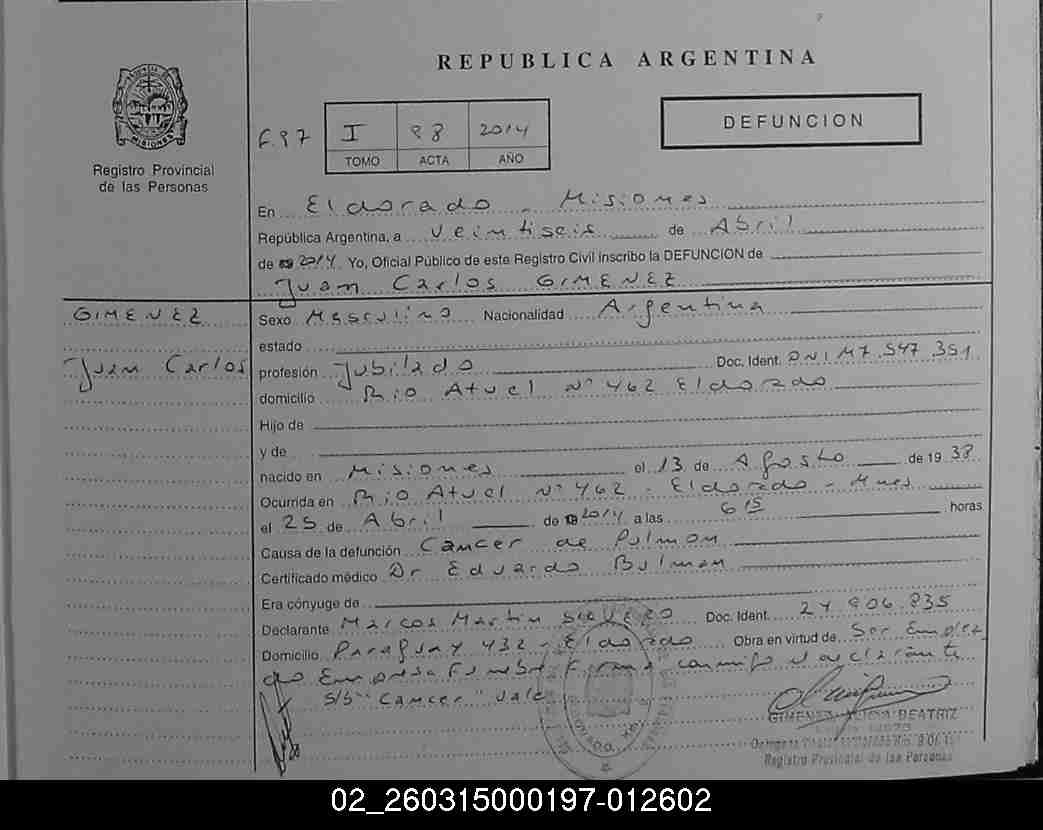 REPUBLICA ARGENTINA
MISIONES
Registro Provincial
de las Personas
I 88 2014
TOMO ACTA AÑO
DEFUNCION
En Eldorado - Misiones
República Argentina, a veintiseis de Abril
de 2014 Yo, Oficial Público de este Registro Civil inscribo la DEFUNCION de
Juan Carlos GIMENEZ
GIMENEZ
Juan Carlos
Sexo Masculino Nacionalidad Argentina
estado
profesión Jubilado Doc. Ident. DNI M7.547.351
domicilio Rio Atuel Nº 462 Eldorado
Hijo de
y de
nacido en Misiones el 13 de Agosto de 1938
Ocurrida en Rio Atuel Nº 462 - Eldorado - Mnes
el 25 de Abril de 2014 a las 6 15 horas
Causa de la defunción Cancer de Pulmon
Certificado médico Dr Eduardo Bulman
Era cónyuge de
Declarante Marcos Martin Doc. Ident. 24 906.835
Domicilio Paraguay 432 - Eldorado Obra en virtud de Ser Emplea
do Empresa Funebre Firma conmigo el declarante
S/S "Cancer" Vale
GIMENEZ BEATRIZ
Registro Provincial de las Personas
02_260315000197-012602